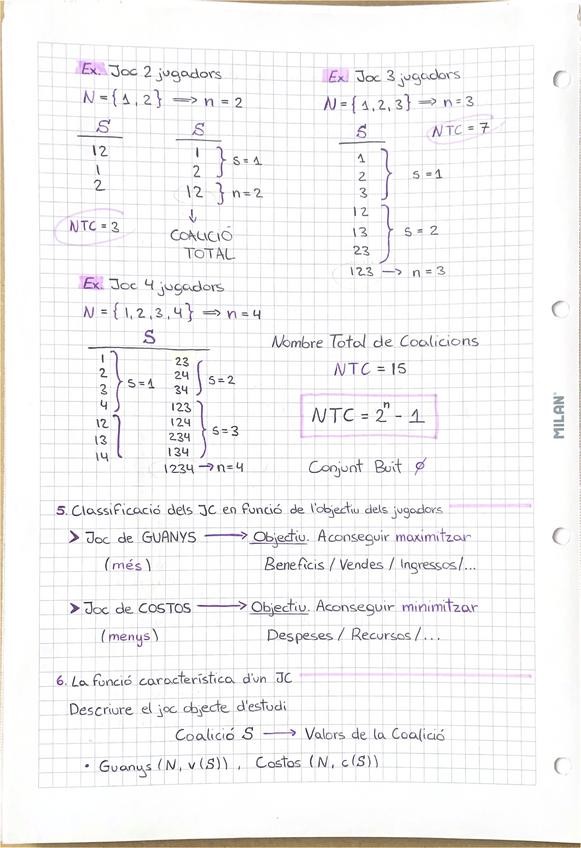 Ex. Joc 2 jugadors
N = {1, 2} ⟹ n = 2
S
12
1
2
NTC = 3
S
1
2
s = 1
12 } n = 2
↓
COALICIÓ
TOTAL
Ex. Joc 3 jugadors
N = {1, 2, 3} ⟹ n = 3
S
NTC = 7
1
2
3
s = 1
12
13
23
s = 2
123 → n = 3
Ex. Joc 4 jugadors
N = {1, 2, 3, 4} ⟹ n = 4
S
1
2
3
4
s = 1
12
13
14
23
24
34
s = 2
123
124
234
134
s = 3
1234 → n = 4
Nombre Total de Coalicions
NTC = 15
NTC = 2ⁿ - 1
Conjunt Buit ∅
MILAN
5. Classificació dels JC en funció de l'objectiu dels jugadors
➤ Joc de GUANYS ⟶ Objectiu. Aconseguir maximitzar
(més) Beneficis / Vendes / Ingressos/...
➤ Joc de COSTOS ⟶ Objectiu. Aconseguir minimitzar
(menys) Despeses / Recursos /...
6. La funció característica d'un JC
Descriure el joc objecte d'estudi
Coalició S ⟶ Valors de la Coalició
• Guanys (N, v(S)), Costos (N, c(S))